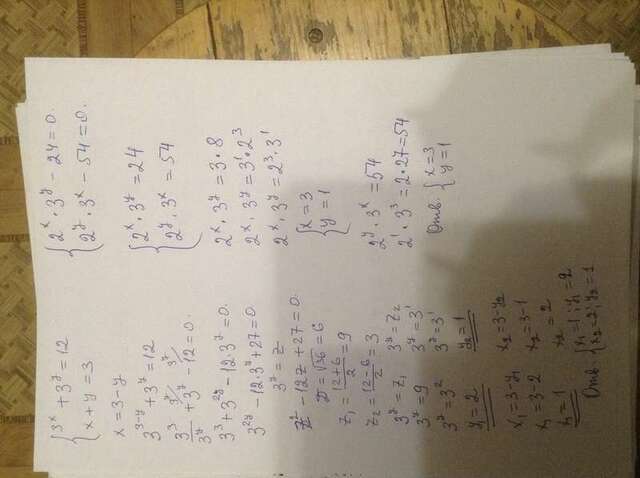 {3ˣ + 3ʸ = 12
x + y = 3
x = 3 - y
3³⁻ʸ + 3ʸ = 12
3³/3ʸ + 3ʸ - 12 = 0.
3³ + 3²ʸ - 12·3ʸ = 0.
3²ʸ - 12·3ʸ + 27 = 0
3ʸ = z
z² - 12z + 27 = 0.
D = √36 = 6
z₁ = (12+6)/2 = 9
z₂ = (12-6)/2 = 3
3ʸ = z₁ 3ʸ = z₂
3ʸ = 9 3ʸ = 3¹
3ʸ = 3² 3ʸ = 3¹
y₁ = 2 y₂ = 1
x₁ = 3 - y₁ x₂ = 3 - y₂
x₁ = 3 - 2 x₂ = 3 - 1
x₁ = 1 x₂ = 2
Отв. {x₁ = 1; y₁ = 2
x₂ = 2; y₂ = 1
{2ˣ · 3ʸ - 24 = 0.
2ʸ · 3ˣ - 54 = 0.
{2ˣ · 3ʸ = 24
2ʸ · 3ˣ = 54
2ˣ · 3ʸ = 3 · 8
2ˣ · 3ʸ = 3¹ · 2³
2ˣ · 3ʸ = 2³ · 3¹
{x = 3
y = 1
2ʸ · 3ˣ = 54
2¹ · 3³ = 2 · 27 = 54
Отв. {x = 3
y = 1